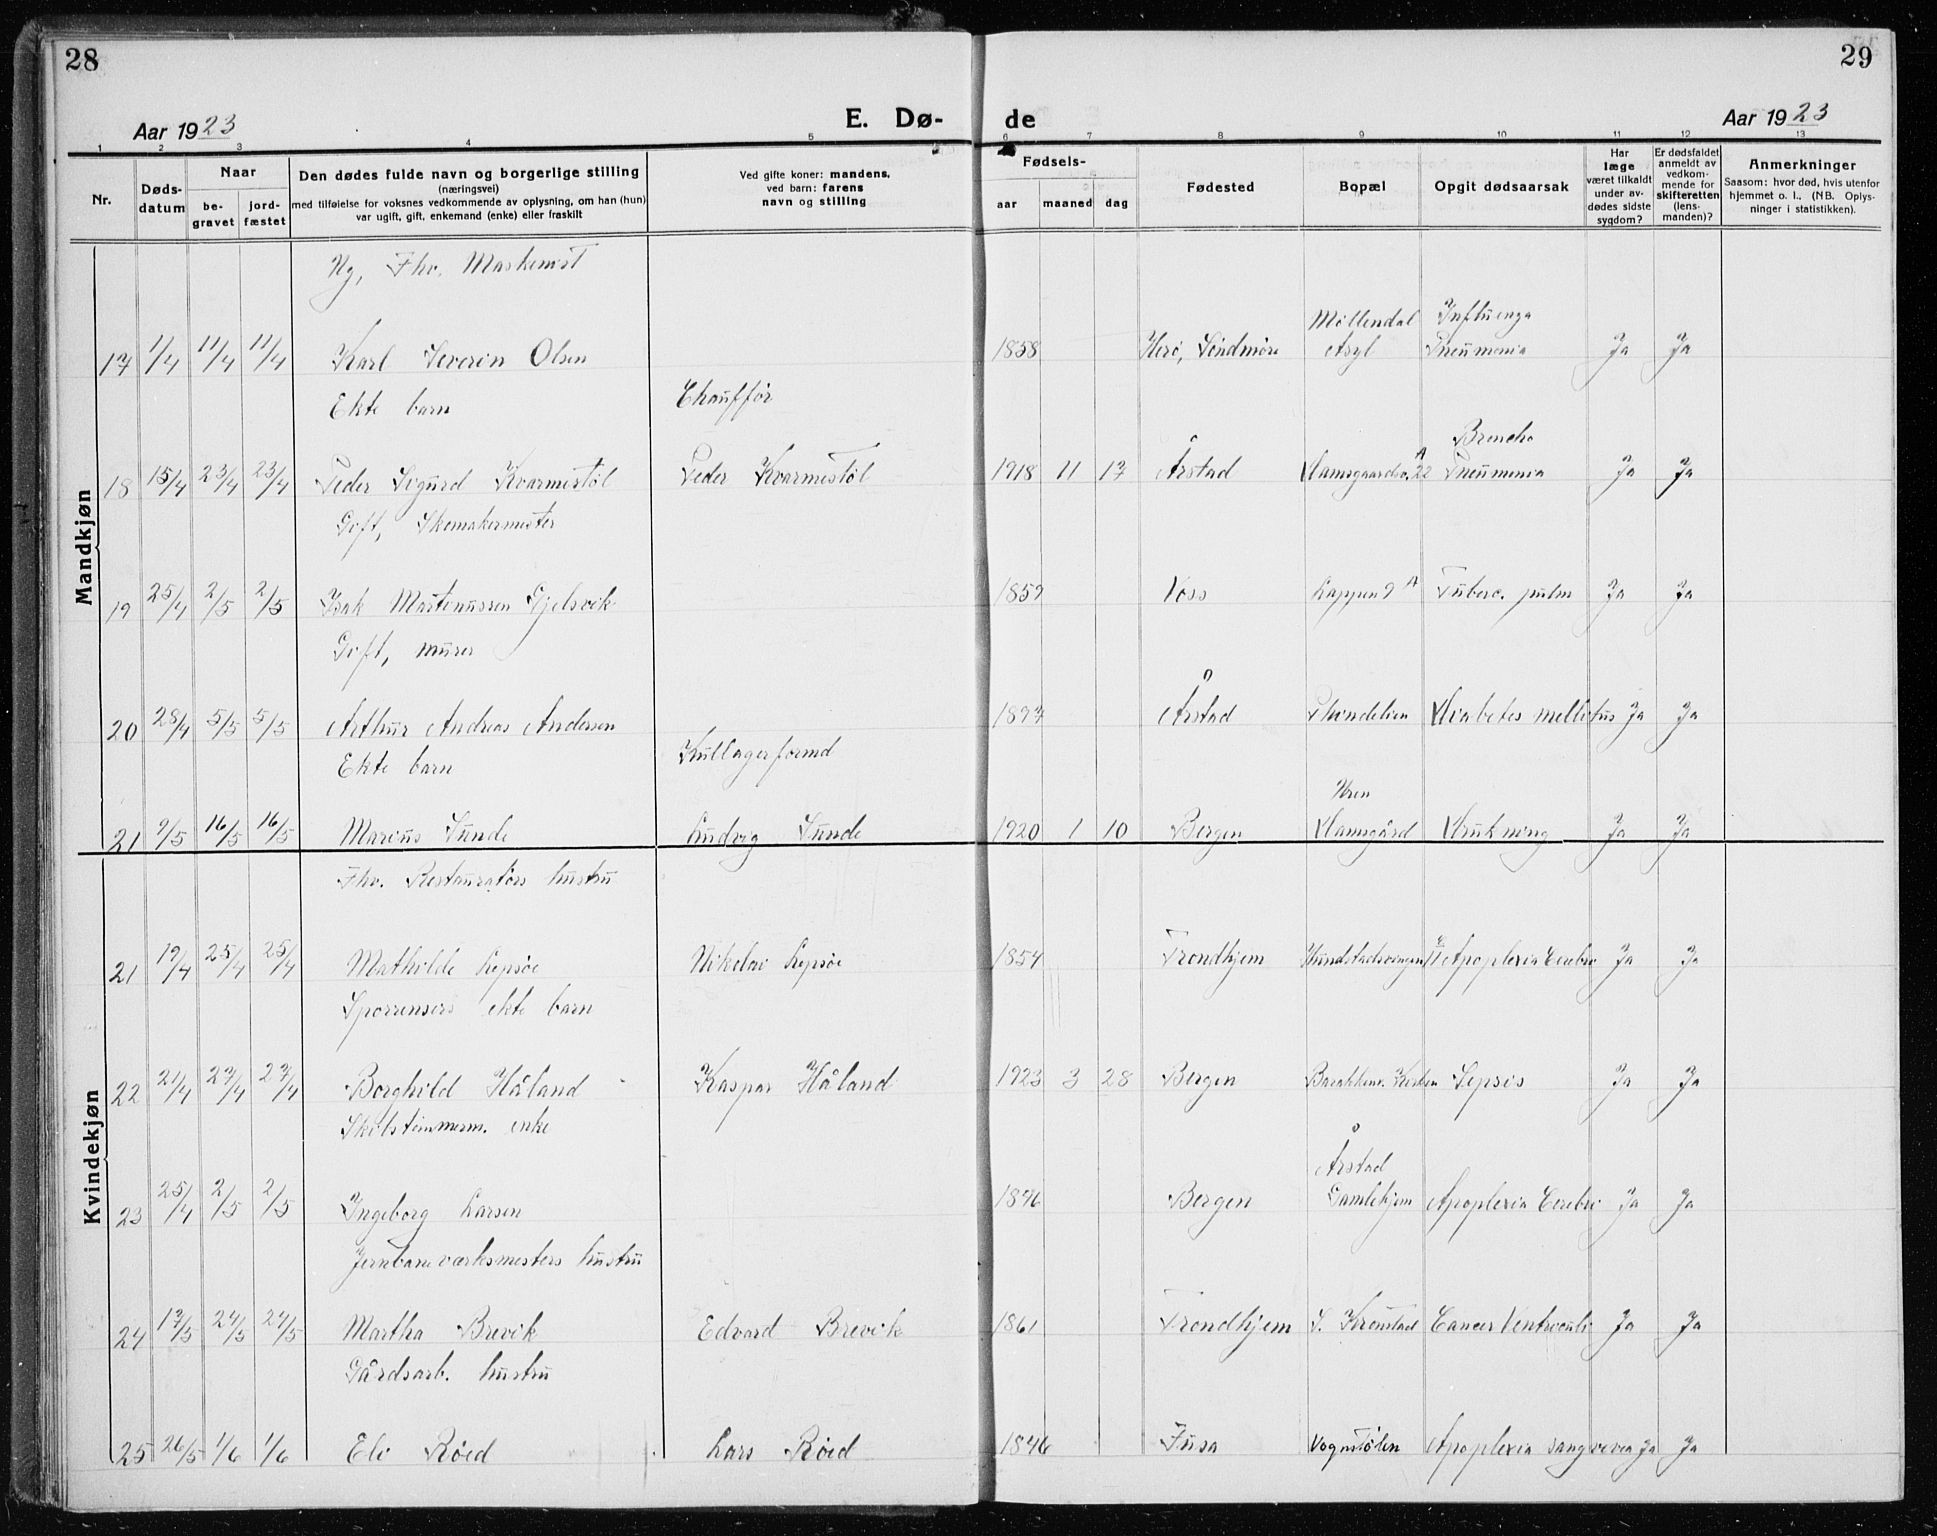 28
29
Aar 1923
E. Dø-
de
Aar 1923
1 2 3 4 5 6 7 8 9 10 11 12 13
Nr.
Døds-
datum
Naar
be-
gravet
jord-
fæstet
Den dødes fulde navn og borgerlige stilling
(næringsvei)
med tilføielse for voksnes vedkommende av oplysning, om han (hun)
var ugift, gift, enkemand (enke) eller fraskilt
Ved gifte koner: mandens,
ved barn: farens
navn og stilling
Fødsels-
aar
maaned
dag
Fødested
Bopæl
Opgit dødsaarsak
Har
læge
været tilkaldt
under av-
dødes sidste
sygdom?
Er dødsfaldet
anmeldt av
vedkom-
mende for
skifteretten
(lens-
manden)?
Anmerkninger
Saasom: hvor død, hvis utenfor
hjemmet o. l., (NB. Oplys-
ninger i statistikken).
Mandkjøn
Ug, Fhv. Maskinist
Møllendal Influenza
17 11/4 11/4 Karl Severin Olsen 1858 Herö, Söndmöre Asyl Pneumonia Ja Ja
Ekte barn Chaufför
Broncho
18 15/4 23/4 23/4 Peder Sigurd Kvarmestøl Peder Kvarmestøl 1918 11 17 Årstad 22 A Pneumonia Ja Ja
Gift, Skomakermester
19 25/4 2/5 2/5 Isak Martinussen Gjelsvik 1859 Voss Lappen 9 A Tuberc. pulm Ja Ja
Gift, murer
20 28/4 5/5 5/5 Arthur Andreas Andersen 1897 Årstad Diabetes mellitus Ja Ja
Ekte barn Kullagerformd
Uren
21 9/5 16/5 16/5 Marius Sunde Ludvig Sunde 1920 1 10 Bergen Damsgård Drukning Ja Ja
Kvindekjøn
Fhv. Restauratørs hustru
21 19/4 25/4 25/4 Mathilde Lepsöe Nikolai Lepsöe 1854 Trondhjem Apoplexia Cerebri Ja Ja
Sporrensers ekte barn
22 21/4 27/4 27/4 Borghild Håland Kaspar Håland 1923 3 28 Bergen Sepsis Ja Ja
Skibstømmerm. enke
Årstad
23 25/4 2/5 2/5 Ingeborg Larsen 1846 Bergen Gamlehjem Apoplexia Cerebri Ja Ja
Jernbaneværksmesters hustru
24 17/5 24/5 24/5 Martha Brevik Edvard Brevik 1861 Trondhjem S. Kronstad Cancer Ventriculi Ja Ja
Gårdsarb. hustru
25 26/5 1/6 1/6 Eli Röed Lars Röed 1846 Fusa Vognstølen Apoplexia Ja Ja